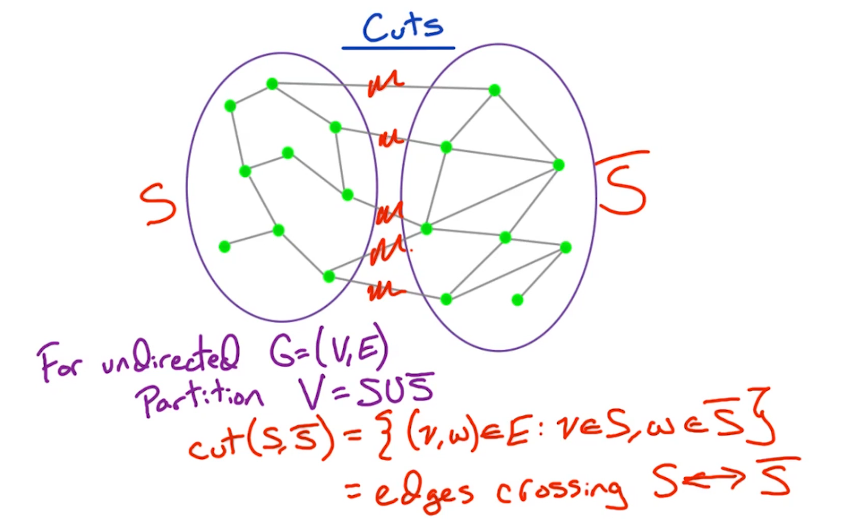 Cuts
S
S̅
For undirected G=(V,E)
Partition V = S∪S̅
cut(S,S̅) = {(v,w)∈E: v∈S, w∈S̅}
= edges crossing S↔S̅